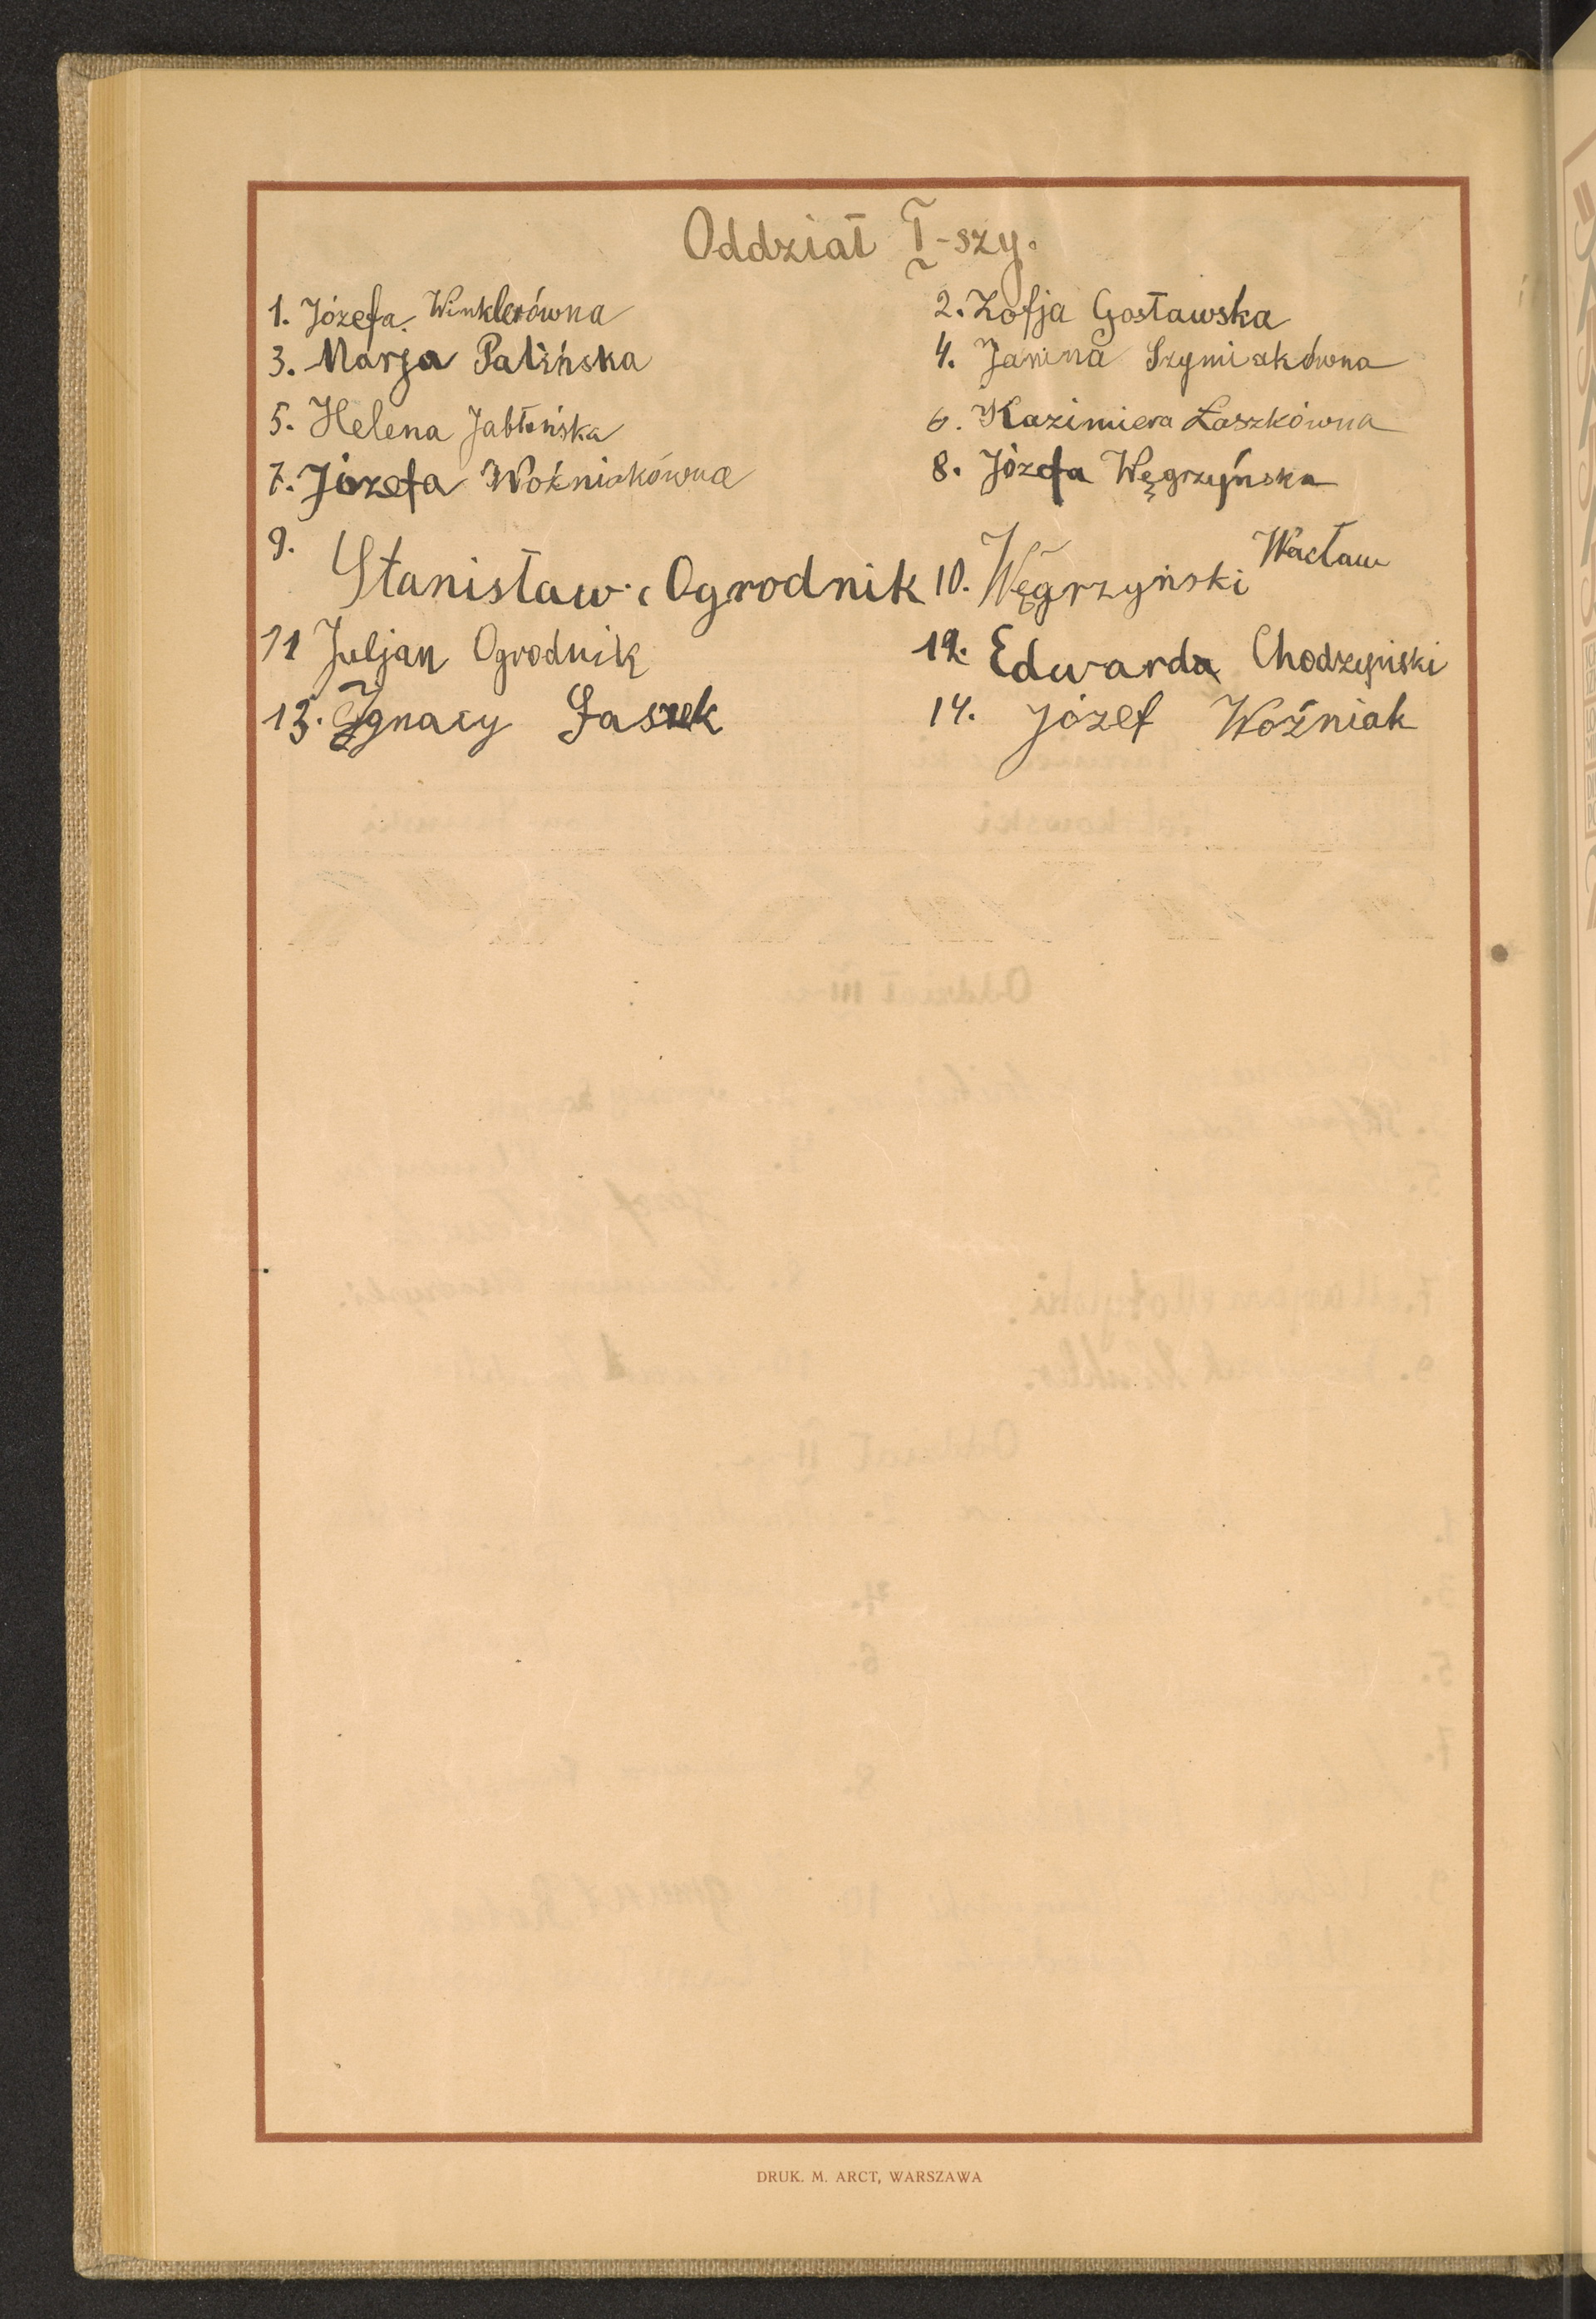 Oddział I-szy.
1. Józefa Winklerówna 2. Zofja Gosławska
3. Marja Palińska 4. Janina Szymiakówna
5. Helena Jabłońska 6. Kazimiera Łaszkówna
7. Józefa Woźniakówna 8. Józefa Węgrzyńska
9. Stanisław Ogrodnik 10. Węgrzyński Wacław
11 Juljan Ogrodnik 12. Edward Chodzyński
13. Ignacy Laszek 14. Józef Woźniak
DRUK. M. ARCT, WARSZAWA